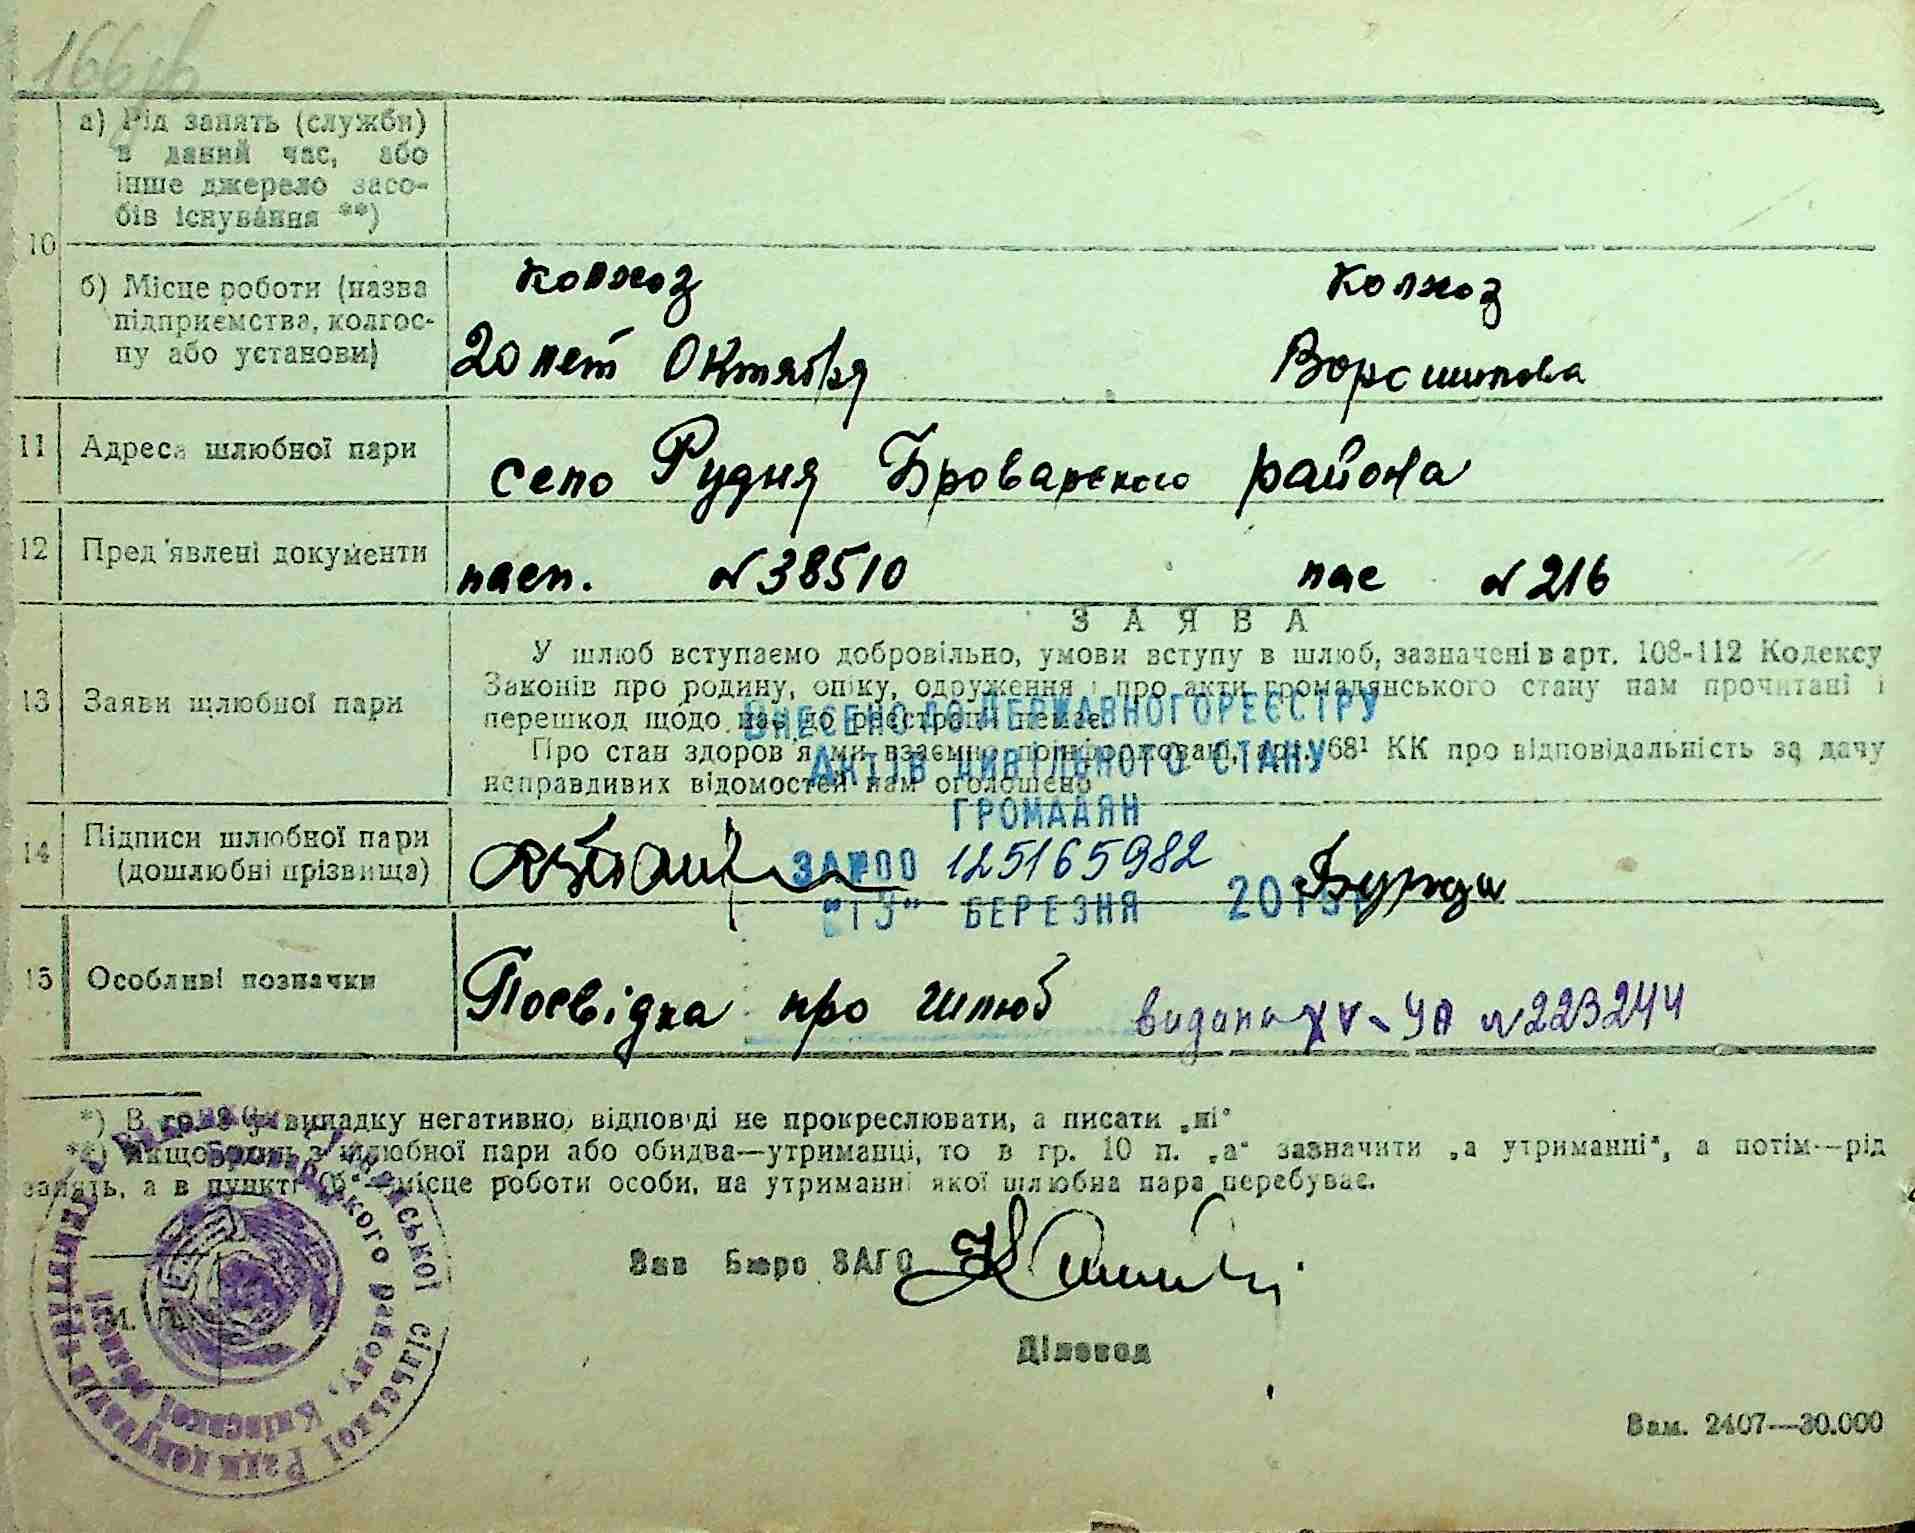 166
а) Рід занять (служби)
в даний час, або
інше джерело засо-
бів існування **)
10
б) Місце роботи (назва
підприємства, колгос-
пу або установи)
колхоз колхоз
20 лет Октября Ворошилова
11 Адреса шлюбної пари
село Рудня Броварского района
12 Пред'явлені документи
пасп. №38510 пас №216
ЗАЯВА
13 Заяви шлюбної пари
У шлюб вступаємо добровільно, умови вступу в шлюб, зазначені в арт. 108-112 Кодексу
Законів про родину, опіку, одруження і про акти громадянського стану нам прочитані і
перешкод щодо нас до реєстрації немає.
Про стан здоров'я ми взаємно поінформовані, арт. 68¹ КК про відповідальність за дачу
неправдивих відомостей нам оголошено
ВНЕСЕНО ДО ДЕРЖАВНОГО РЕЄСТРУ
АКТІВ ЦИВІЛЬНОГО СТАНУ
ГРОМАДЯН
ЗА №00 125165982
БЕРЕЗНЯ
14 Підписи шлюбної пари
(дошлюбні прізвища)
15 Особливі позначки
Посвідка про шлюб видана XV-УА №223244
*) В гр. 9 у випадку негативної відповіді не прокреслювати, а писати „ні"
**) Якщо один з шлюбної пари або обидва—утриманці, то в гр. 10 п. „а" зазначити „а утриманні", а потім—рід
занять, а в пункті „б"—місце роботи особи, на утриманні якої шлюбна пара перебуває.
Зав Бюро ЗАГС
М. П.
Діловод
сільської Ради депутатів
району, Київської області
Зам. 2407—30.000